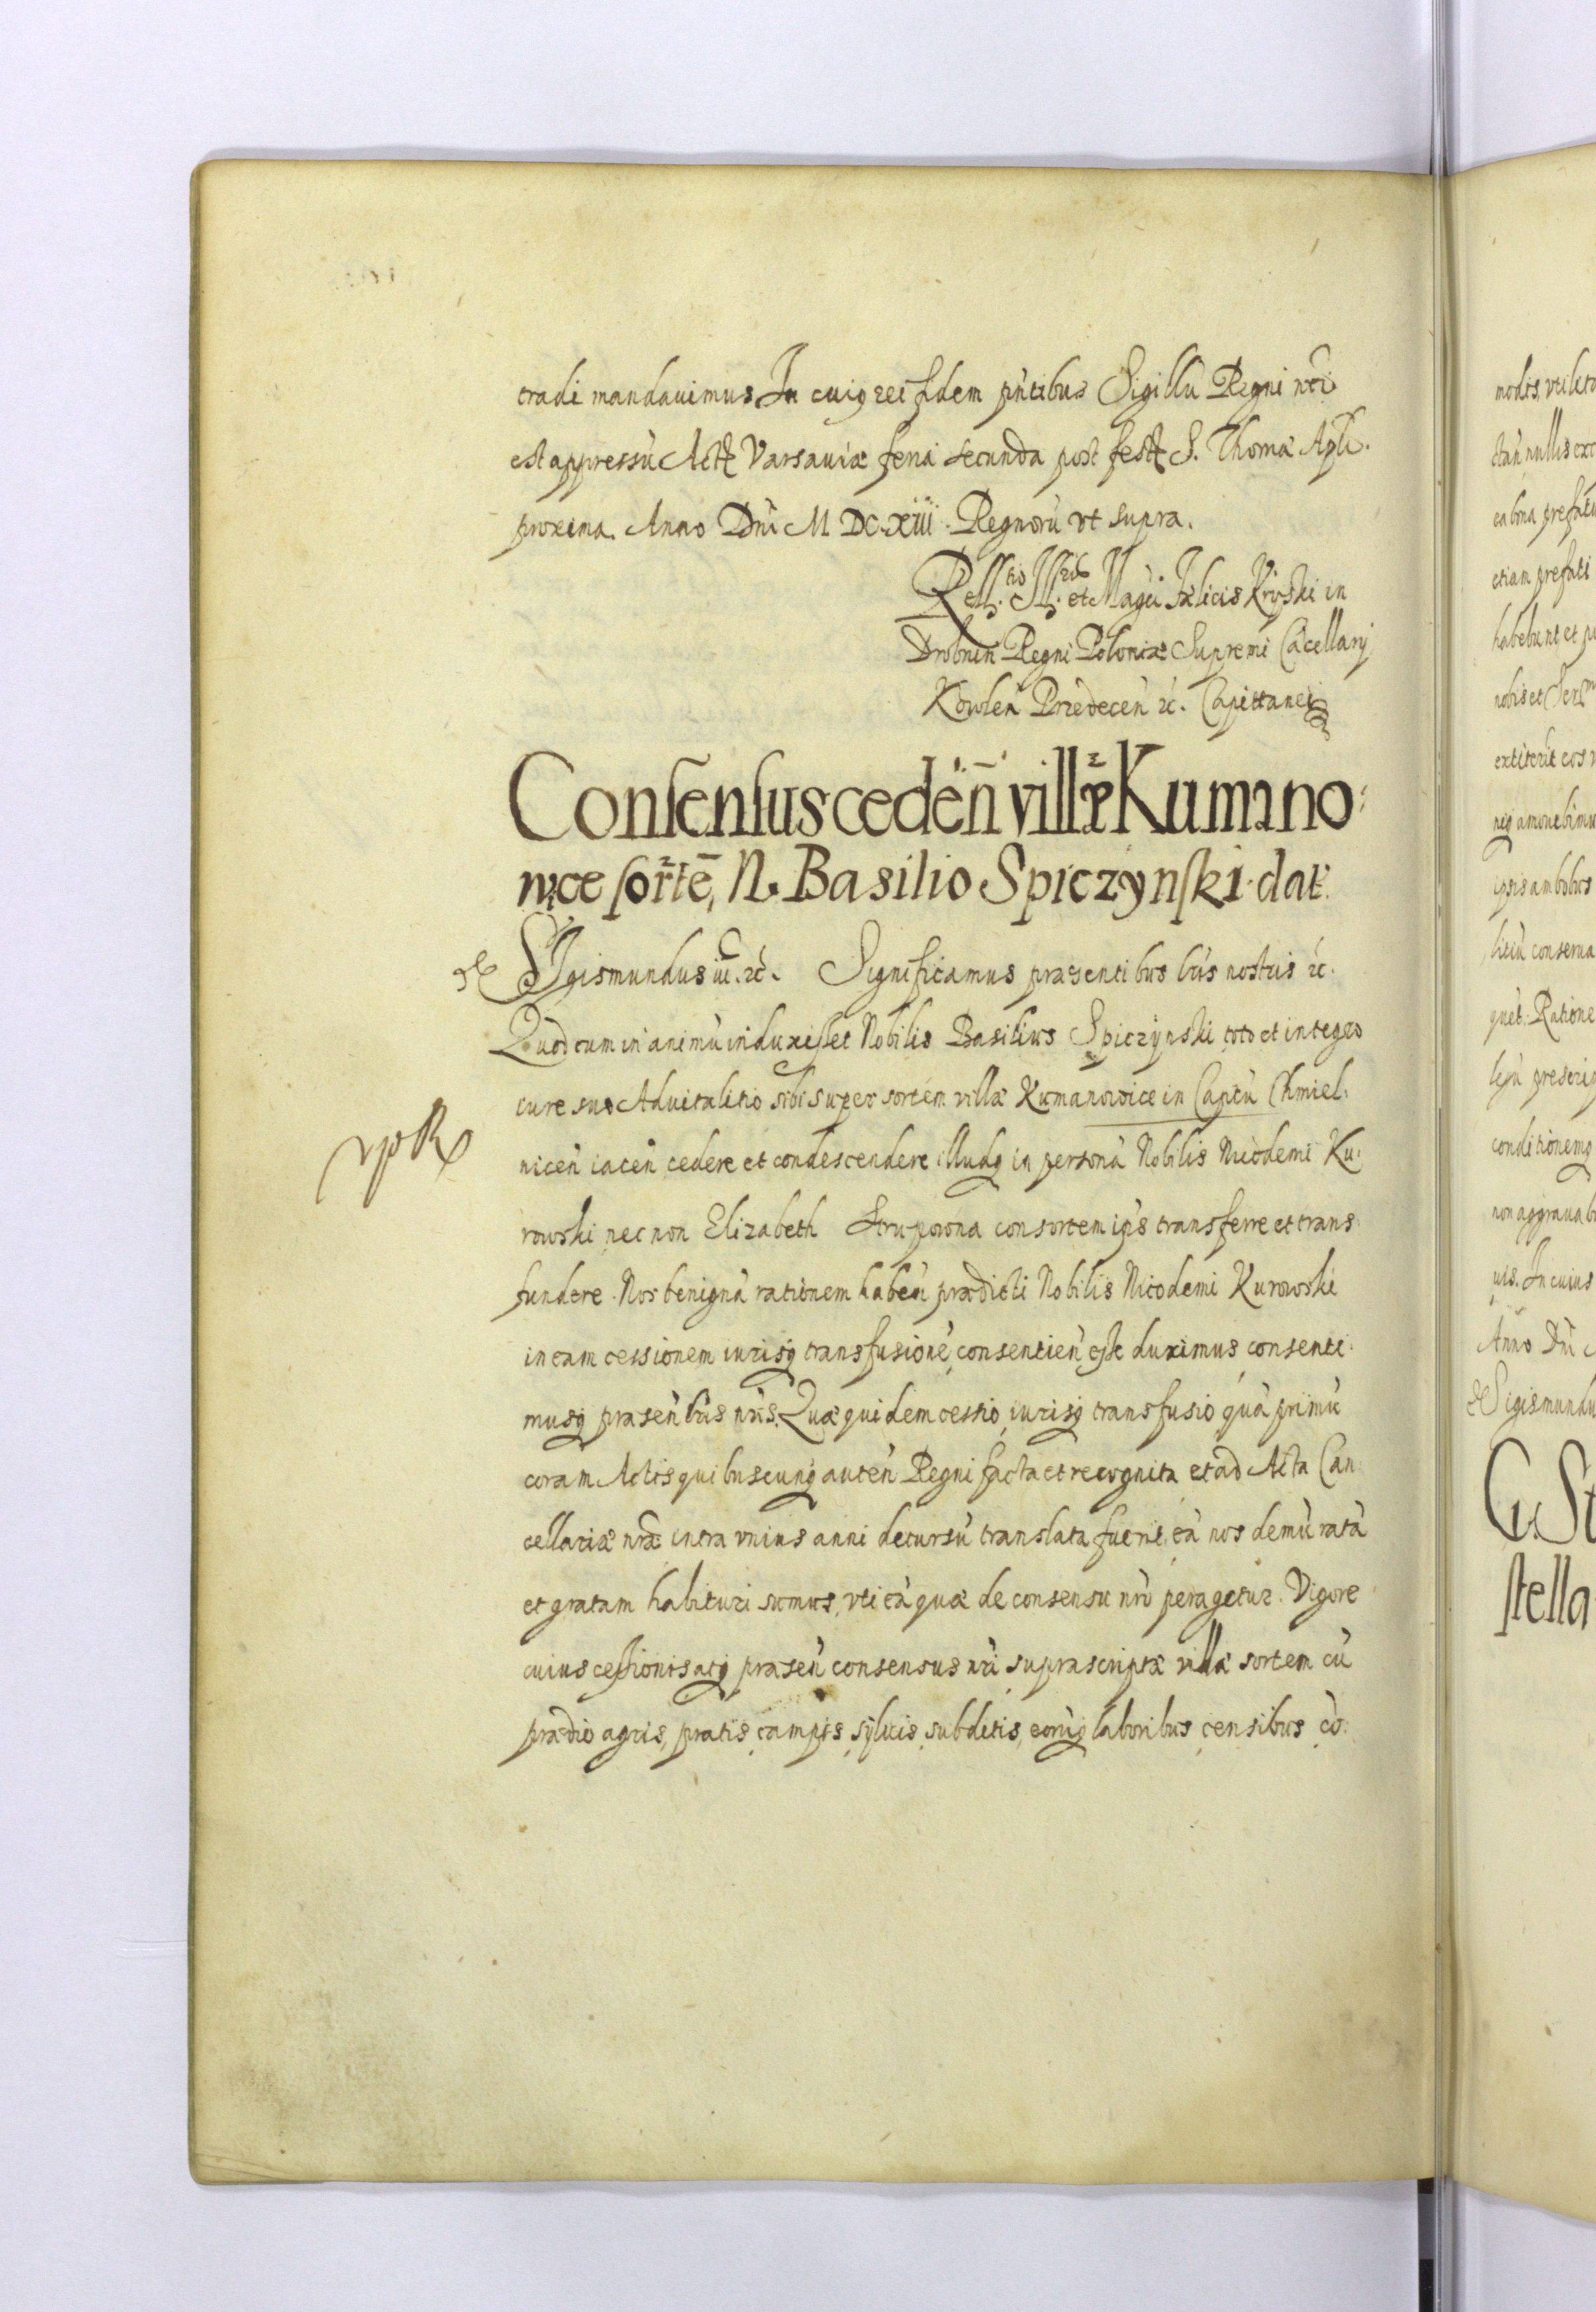 tradi mandauimus In cuiꝗ rei fidem pn̄tibus Sigillū Regni nr̄i
est appressū Actꝭ Varsauiæ feria secunda post festꝭ S. Thomæ Apli.
proxima. Anno Dn̄i M DC.XIII. Regnorū vt supra.
Rell.tio Ill. et Magci Fælicis Kriski in
Drobnin Regni Poloniæ Supremi Cācellarÿ
Kowlen̄ Przedecen̄ ꝛc. Capittanei
Consensus ceden̄ villæ Kumano:
wice sortē, N. Basilio Spiczynski dat:
Sigismundus iii. ꝛc. Significamus præsentibus lr̄is nostris ꝛc.
Quod cum in animū induxisset Nobilis Basilius Spiczÿnski toto et integro
iure suo Aduitalitio sibi super sortem villæ Kumanowice in Captū Chmiel:
nicen̄ iacen̄ cedere et condescendere illudꝗ in personā Nobilis Nicodemi Ku:
rowski nec non Elizabeth Strupowna consortem ip̄s transferre et trans
fundere. Nos benignā rationem haben̄ prædicti Nobilis Nicodemi Kurowski
in eam cessionem iurisꝗ transfusionē consentien̄ esse duximus consenti:
musꝗ præsen̄ lr̄is nr̄is. Quæ quidem cessio iurisꝗ transfusio quā primū
coram Actis quibuscunꝗ auten̄ Regni facta et recognita et ad Acta Can:
cellariæ nr̄æ intra vnius anni decursū translata fuerit, eā nos demū ratā
et gratam habituri sumus, vti eā quæ de consensu nr̄o peragetur. Vigore
cuius cessionis atꝗ præsen̄ consensus nr̄i suprascriptæ villæ sortem cū
prædio agris, pratis campis sÿluis subditis, eorūꝗ laboribus censibus cō:
modis, vtilita
ea bona præfat
etiam prefati
habebunt et
nobis et Ser
extiterit eos
ipsis ambobus
conserua
quet. Ratione
conditionemꝗ
non aggraua
uis. In cuius
Anno Dn̄i
Sigismundu
stella